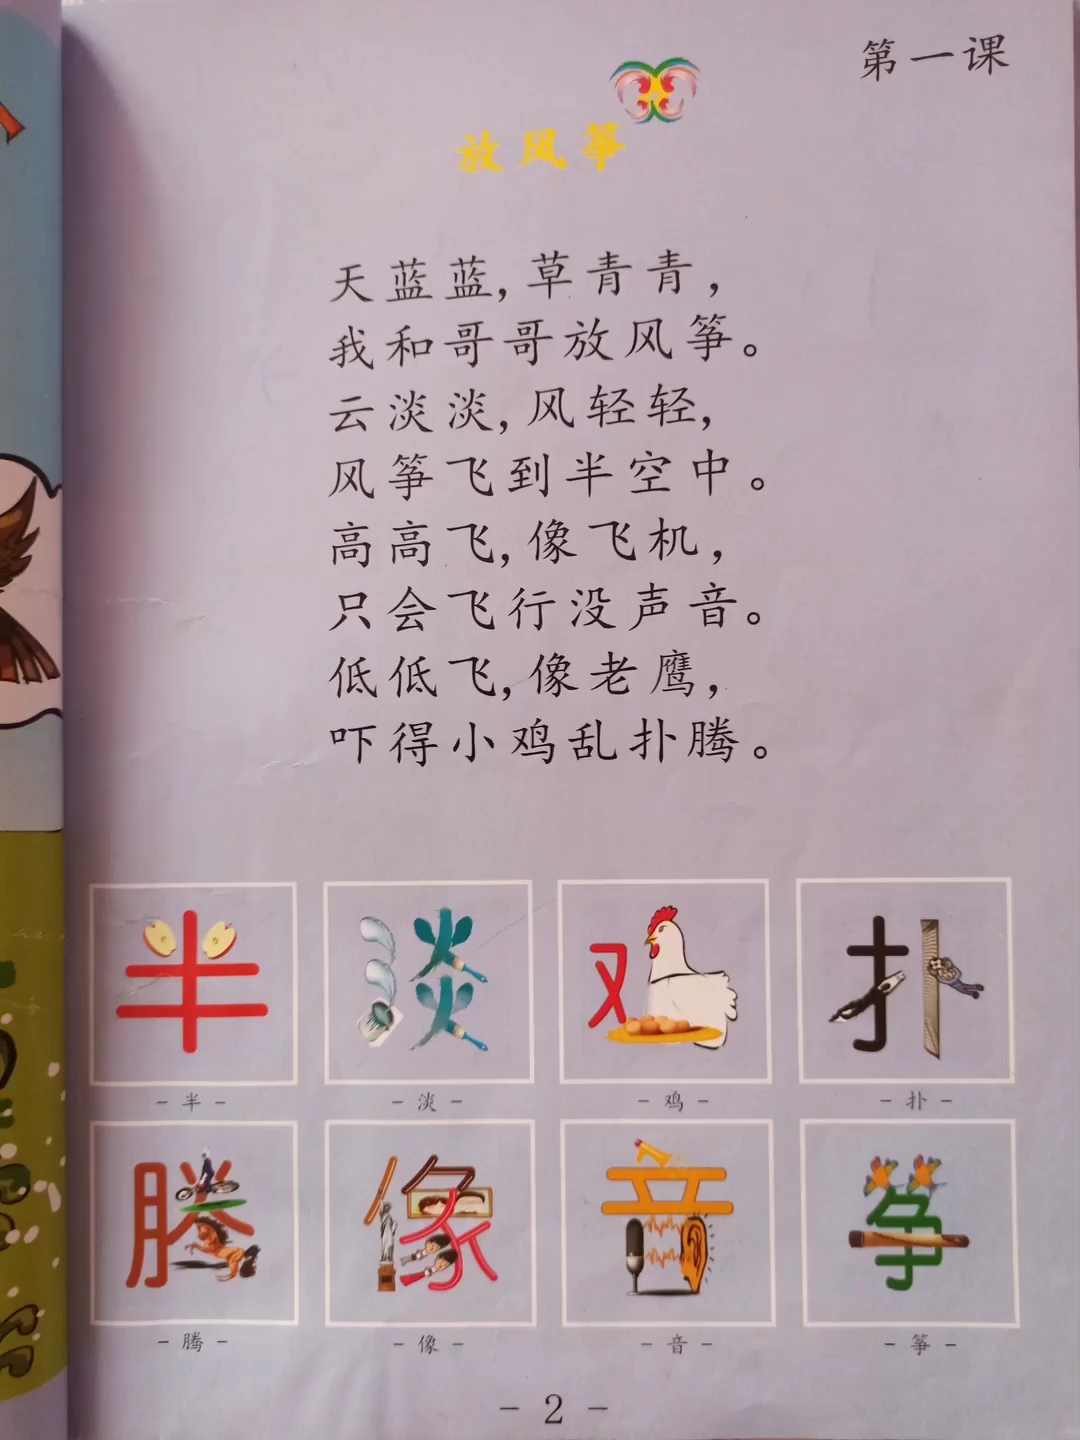 第一课
放风筝
天蓝蓝,草青青,
我和哥哥放风筝。
云淡淡,风轻轻,
风筝飞到半空中。
高高飞,像飞机,
只会飞行没声音。
低低飞,像老鹰,
吓得小鸡乱扑腾。
半 淡 鸡 扑
- 半 - - 淡 - - 鸡 - - 扑 -
腾 像 音 筝
- 腾 - - 像 - - 音 - - 筝 -
- 2 -